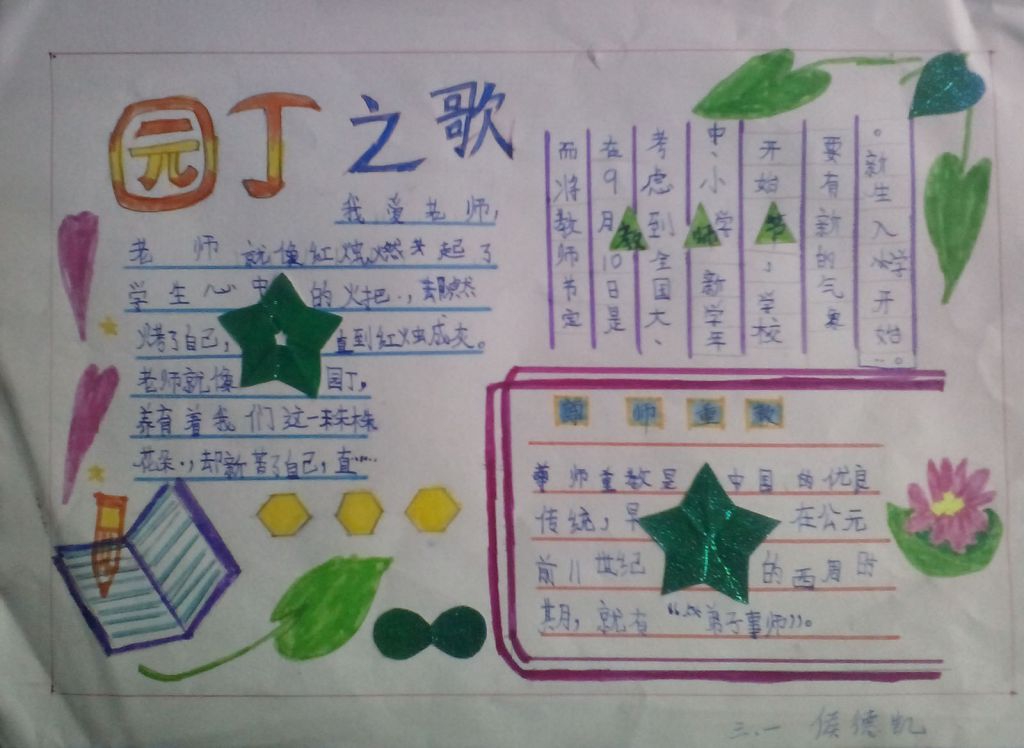 园丁之歌
我爱老师,
老师就像红烛燃起了
学生心中的火把.,
烤了自己,直到红烛成灰。
老师就像园丁,
养育着我们这一株株
花朵.,却辛苦了自己,直……
而将教师节定
在9月10日是
考虑到全国大、
中、小学新学年
开始,学校
要有新的气象
。新生入学开始
教师节
师重教
尊师重教是中国的优良
传统,早在公元
前11世纪的西周时
期,就有“弟子事师”。
三.一 侯德凯